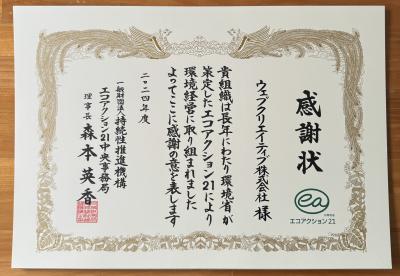 感謝状
ウェブクリエイティブ株式会社 様
貴組織は長年にわたり環境省が
策定したエコアクション21により
環境経営に取り組まれました
よってここに感謝の意を表します
二〇二四年度
一般財団法人持続性推進機構
エコアクション21中央事務局
理事長 森本英香
ea
エコアクション21